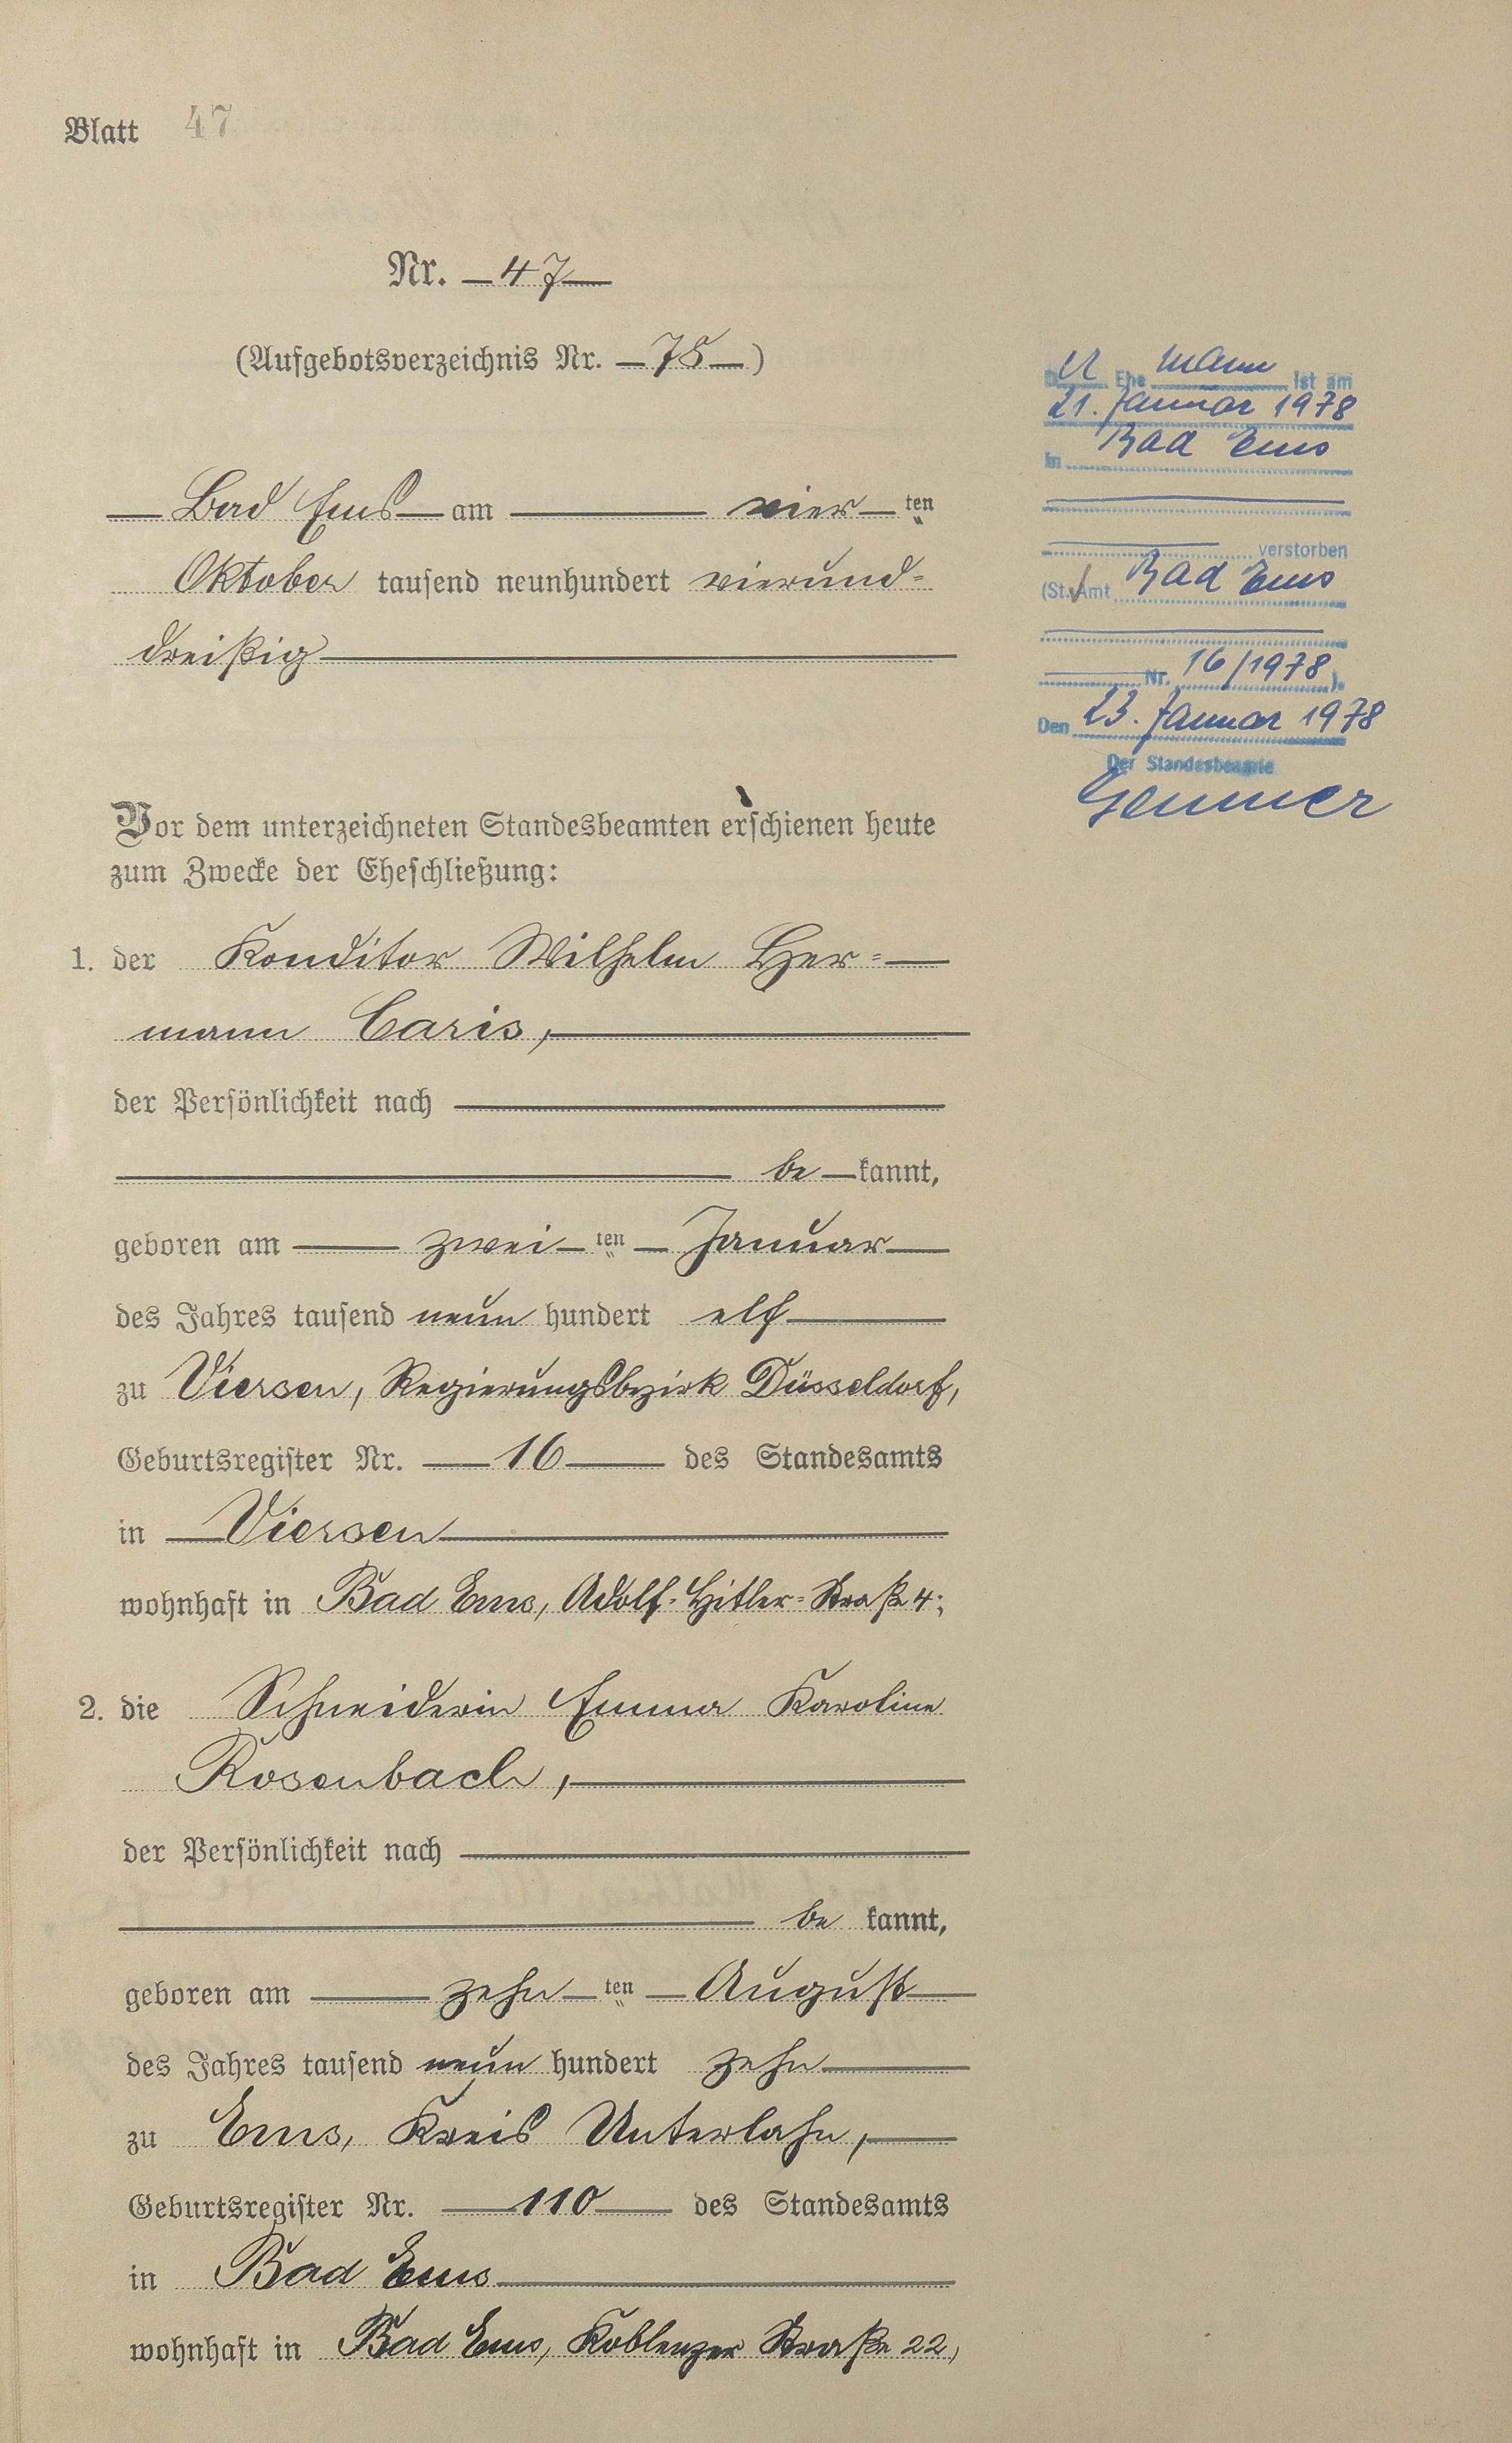 Blatt 47
Nr. 47
(Aufgebotsverzeichnis Nr. 75)
Bad Ems am vier ten
Oktober tausend neunhundert vierund=
dreißig
Vor dem unterzeichneten Standesbeamten erschienen heute
zum Zwecke der Eheschließung:
1. der Konditor Wilhelm Her=
mann Caris,
der Persönlichkeit nach
be kannt,
geboren am zwei ten Januar
des Jahres tausend neun hundert elf
zu Viersen, Regierungsbezirk Düsseldorf,
Geburtsregister Nr. 16 des Standesamts
in Viersen
wohnhaft in Bad Ems, Adolf-Hitler-Straße 4;
2. die Schneiderin Emma Karoline
Rosenbach,
der Persönlichkeit nach
be kannt,
geboren am zehn ten August
des Jahres tausend neun hundert zehn
zu Ems, Kreis Unterlahn,
Geburtsregister Nr. 110 des Standesamts
in Bad Ems
wohnhaft in Bad Ems, Koblenzer Straße 22,
Der Ehe mann ist am
21. Januar 1978
in Bad Ems
verstorben
(St.Amt Bad Ems
Nr. 16/1978).
Den 23. Januar 1978
Der Standesbeamte